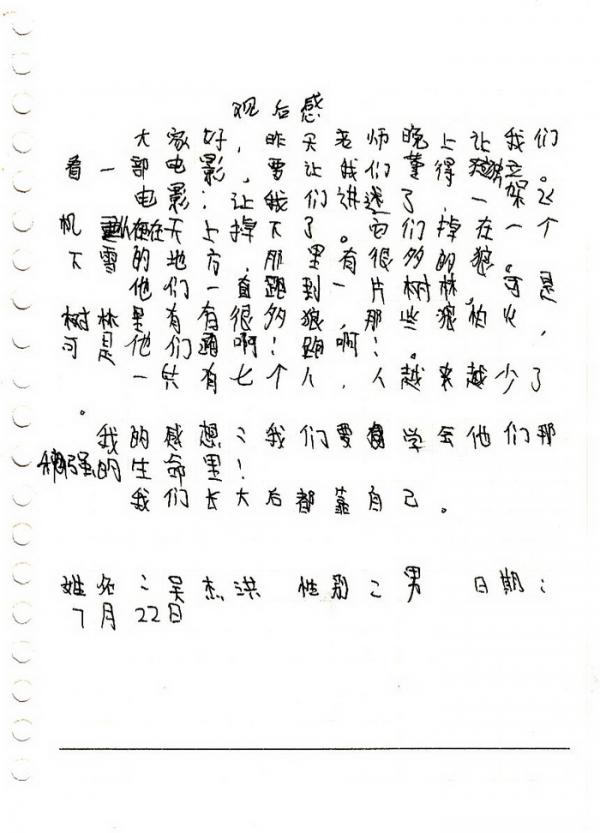 观后感
大家好，昨天老师晚上让我们
看一部电影，要让我们董得独立。
电影：让我们讲述了，一架飞
机在天上掉下了。它们掉在一个
下雪的地方，那里有很多的狼。
他们一直跑到一片树林，可是
树林里有有很多狼，那些狼怕火，
可是他们跑啊！跑啊！
一共有七个人，人越来越少了
。
我的感想：我们要学会他们那
强的生命里！
我们长大后都靠自己。
姓名：吴杰洪 性别：男 日期：
7月22日